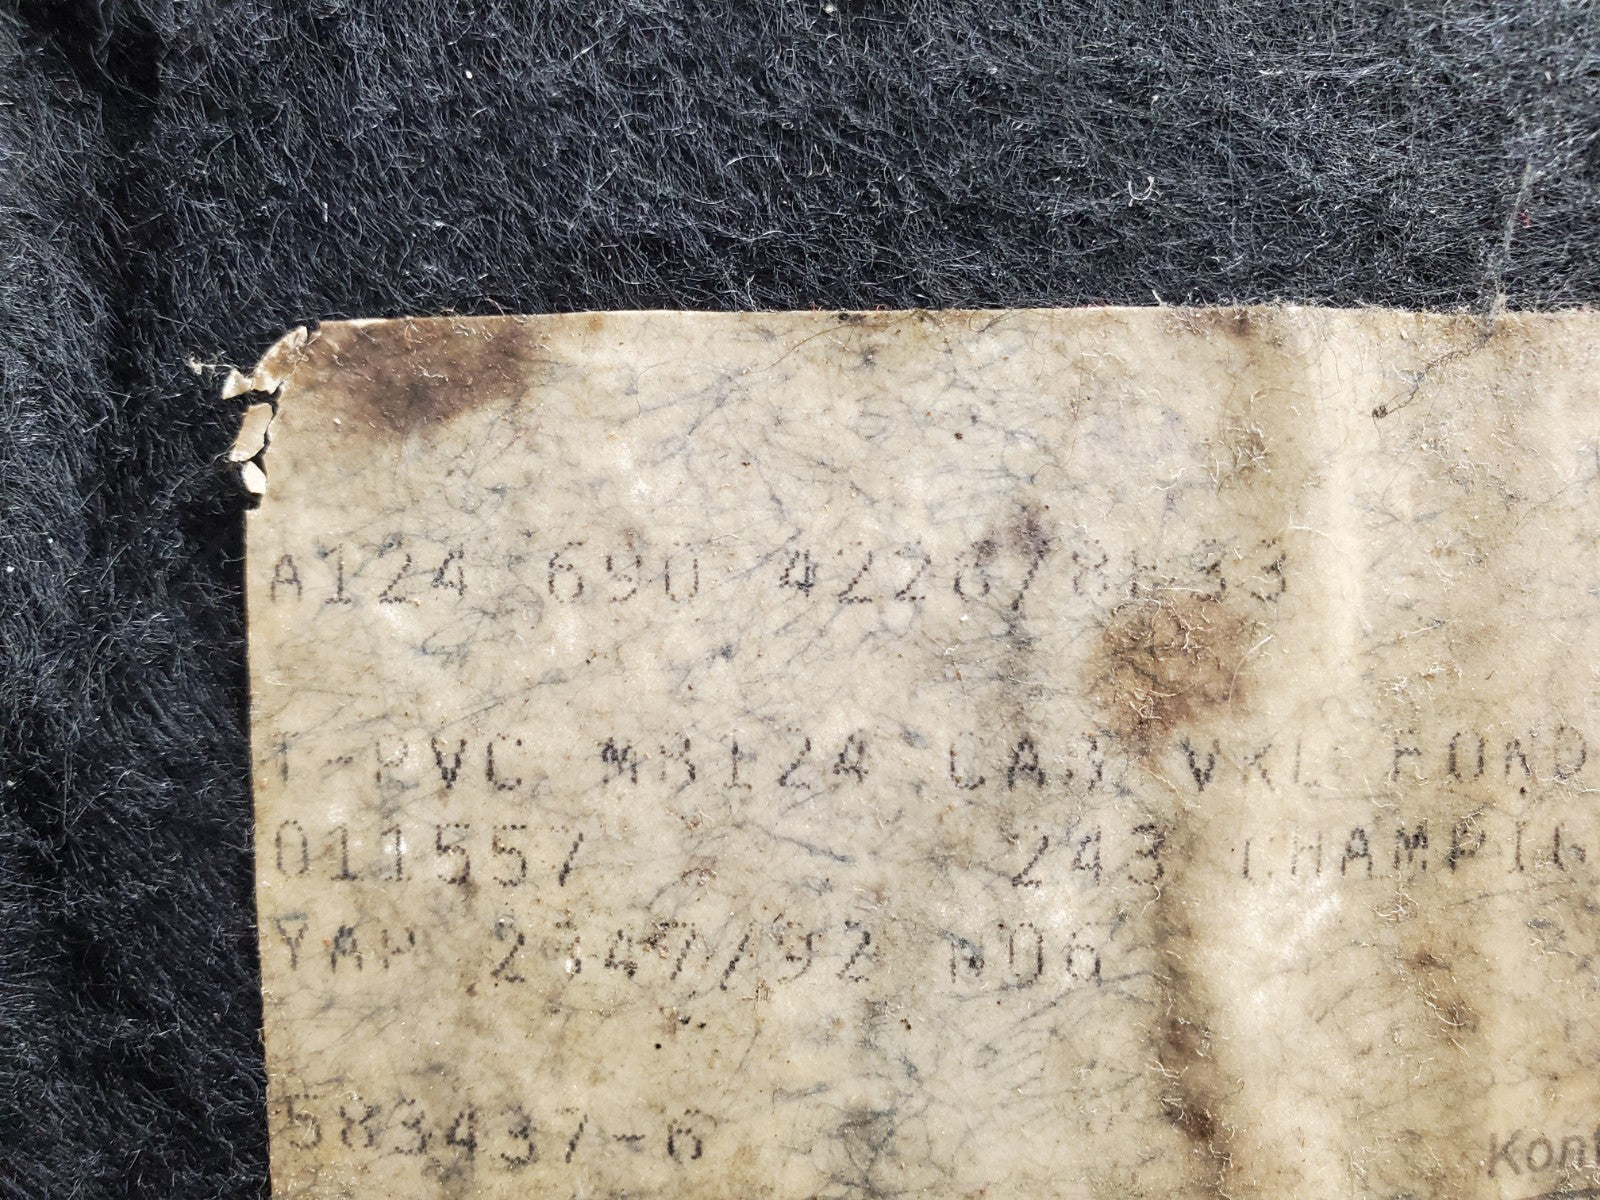 A124 690 4226/8F33
T-PVC MB124 CABR VKL
011557 243 CHAMPIG
YAP /92 N06
583437-6
Kont